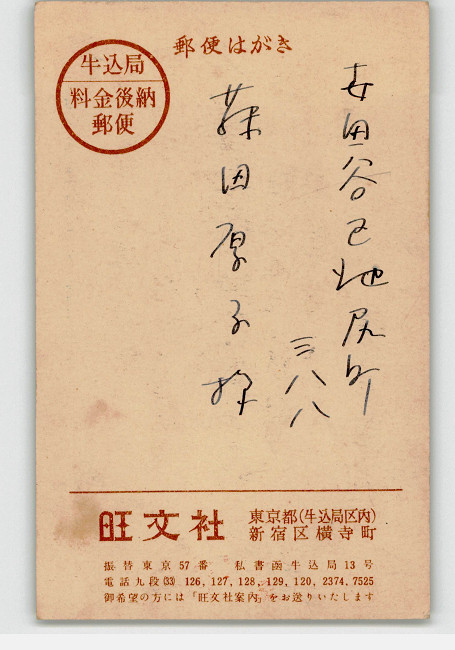 郵便はがき
牛込局
料金後納
郵便
世田谷区池尻町
三八八
藤田厚子様
旺文社
東京都(牛込局区内)
新宿区横寺町
振替東京57番 私書函牛込局13号
電話九段(33) 126, 127, 128, 129, 120, 2374, 7525
御希望の方には「旺文社案内」をお送りいたします